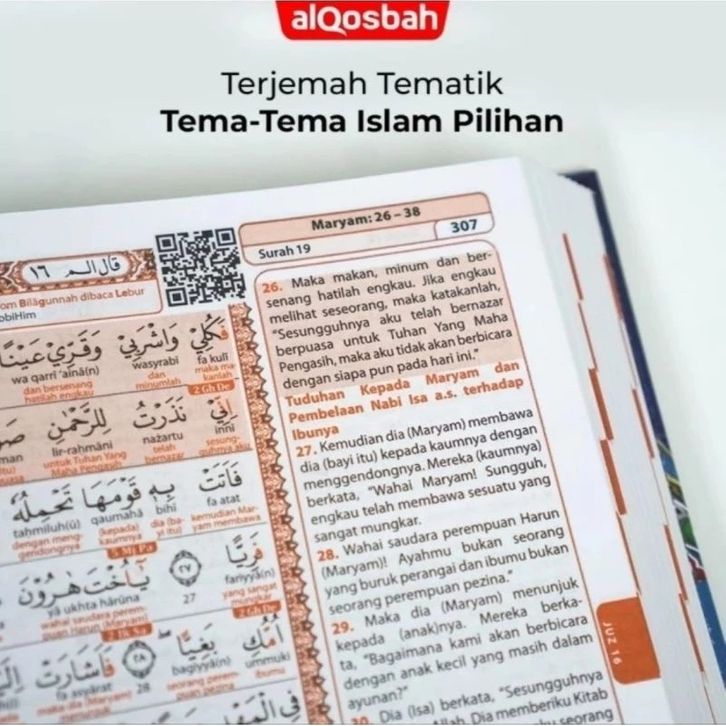 alQosbah
Terjemah Tematik
Tema-Tema Islam Pilihan
Maryam: 26 – 38
Surah 19
307
قال الم ١٦
om Bilāgunnah dibaca Lebur
obiHim
فَكُلِيْ وَاشْرَبِيْ وَقَرِّيْ عَيْنًا
fa kulī
wasyrabī
wa qarrī ‘ainā(n)
maka ma-
kanlah
dan
minumlah
dan bersenang
hatilah engkau
2 Gh De
اِنِّيْ نَذَرْتُ لِلرَّحْمٰنِ
innī
nażartu
lir-raḥmāni
man
sesung-
guhnya aku
telah
bernazar
untuk Tuhan Yang
Maha Pengasih
فَاَتَتْ بِهٖ قَوْمَهَا تَحْمِلُهٗ
fa atat
bihī
qaumahā
taḥmiluh(ū)
kemudian Mar-
yam membawa
dia (ba-
yi itu)
(kepada)
kaumnya
dengan meng-
gendongnya
فَرِيًّا ٢٧ يٰٓاُخْتَ هٰرُوْنَ
fariyyā(n)
27
yā ukhta hārūna
yang sangat
mungkar
wahai saudara perem-
puan Harun (Maryam)
2 Gh De
اُمُّكِ بَغِيًّا ٢٨ فَاَشَارَتْ
ummuki
bagiyyā(n)
28
fa asyārat
ibumu
seorang perem-
puan pezina
maka dia (Maryam)
menunjuk
فِى الْمَهْدِ
26. Maka makan, minum dan ber-
senang hatilah engkau. Jika engkau
melihat seseorang, maka katakanlah,
"Sesungguhnya aku telah bernazar
berpuasa untuk Tuhan Yang Maha
Pengasih, maka aku tidak akan berbicara
dengan siapa pun pada hari ini."
Tuduhan Kepada Maryam dan
Pembelaan Nabi Isa a.s. terhadap
Ibunya
27. Kemudian dia (Maryam) membawa
dia (bayi itu) kepada kaumnya dengan
menggendongnya. Mereka (kaumnya)
berkata, "Wahai Maryam! Sungguh,
engkau telah membawa sesuatu yang
sangat mungkar.
28. Wahai saudara perempuan Harun
(Maryam)! Ayahmu bukan seorang
yang buruk perangai dan ibumu bukan
seorang perempuan pezina."
29. Maka dia (Maryam) menunjuk
kepada (anak)nya. Mereka berka-
ta, "Bagaimana kami akan berbicara
dengan anak kecil yang masih dalam
ayunan?"
30. Dia (Isa) berkata, "Sesungguhnya
Allah, Dia memberiku Kitab
seorang
JUZ 16